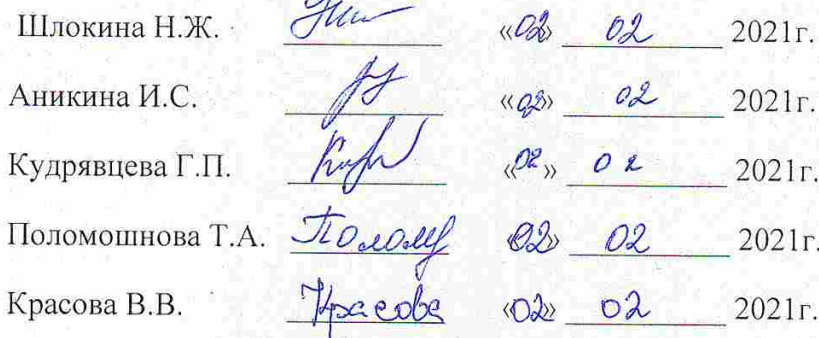 Шлокина Н.Ж. «02» 02 2021г.
Аникина И.С. «02» 02 2021г.
Кудрявцева Г.П. «02» 02 2021г.
Поломошнова Т.А. Полому «02» 02 2021г.
Красова В.В. Красова «02» 02 2021г.